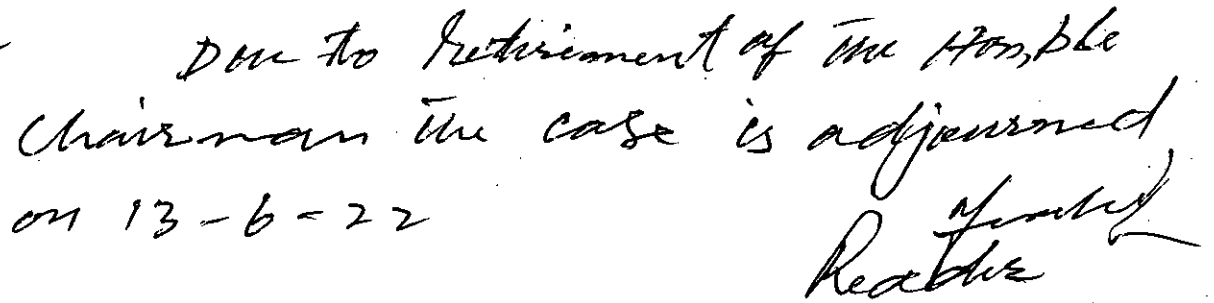 Due to Retirement of the Hon,ble
Chairman the case is adjourned
on 13-6-22
Reader